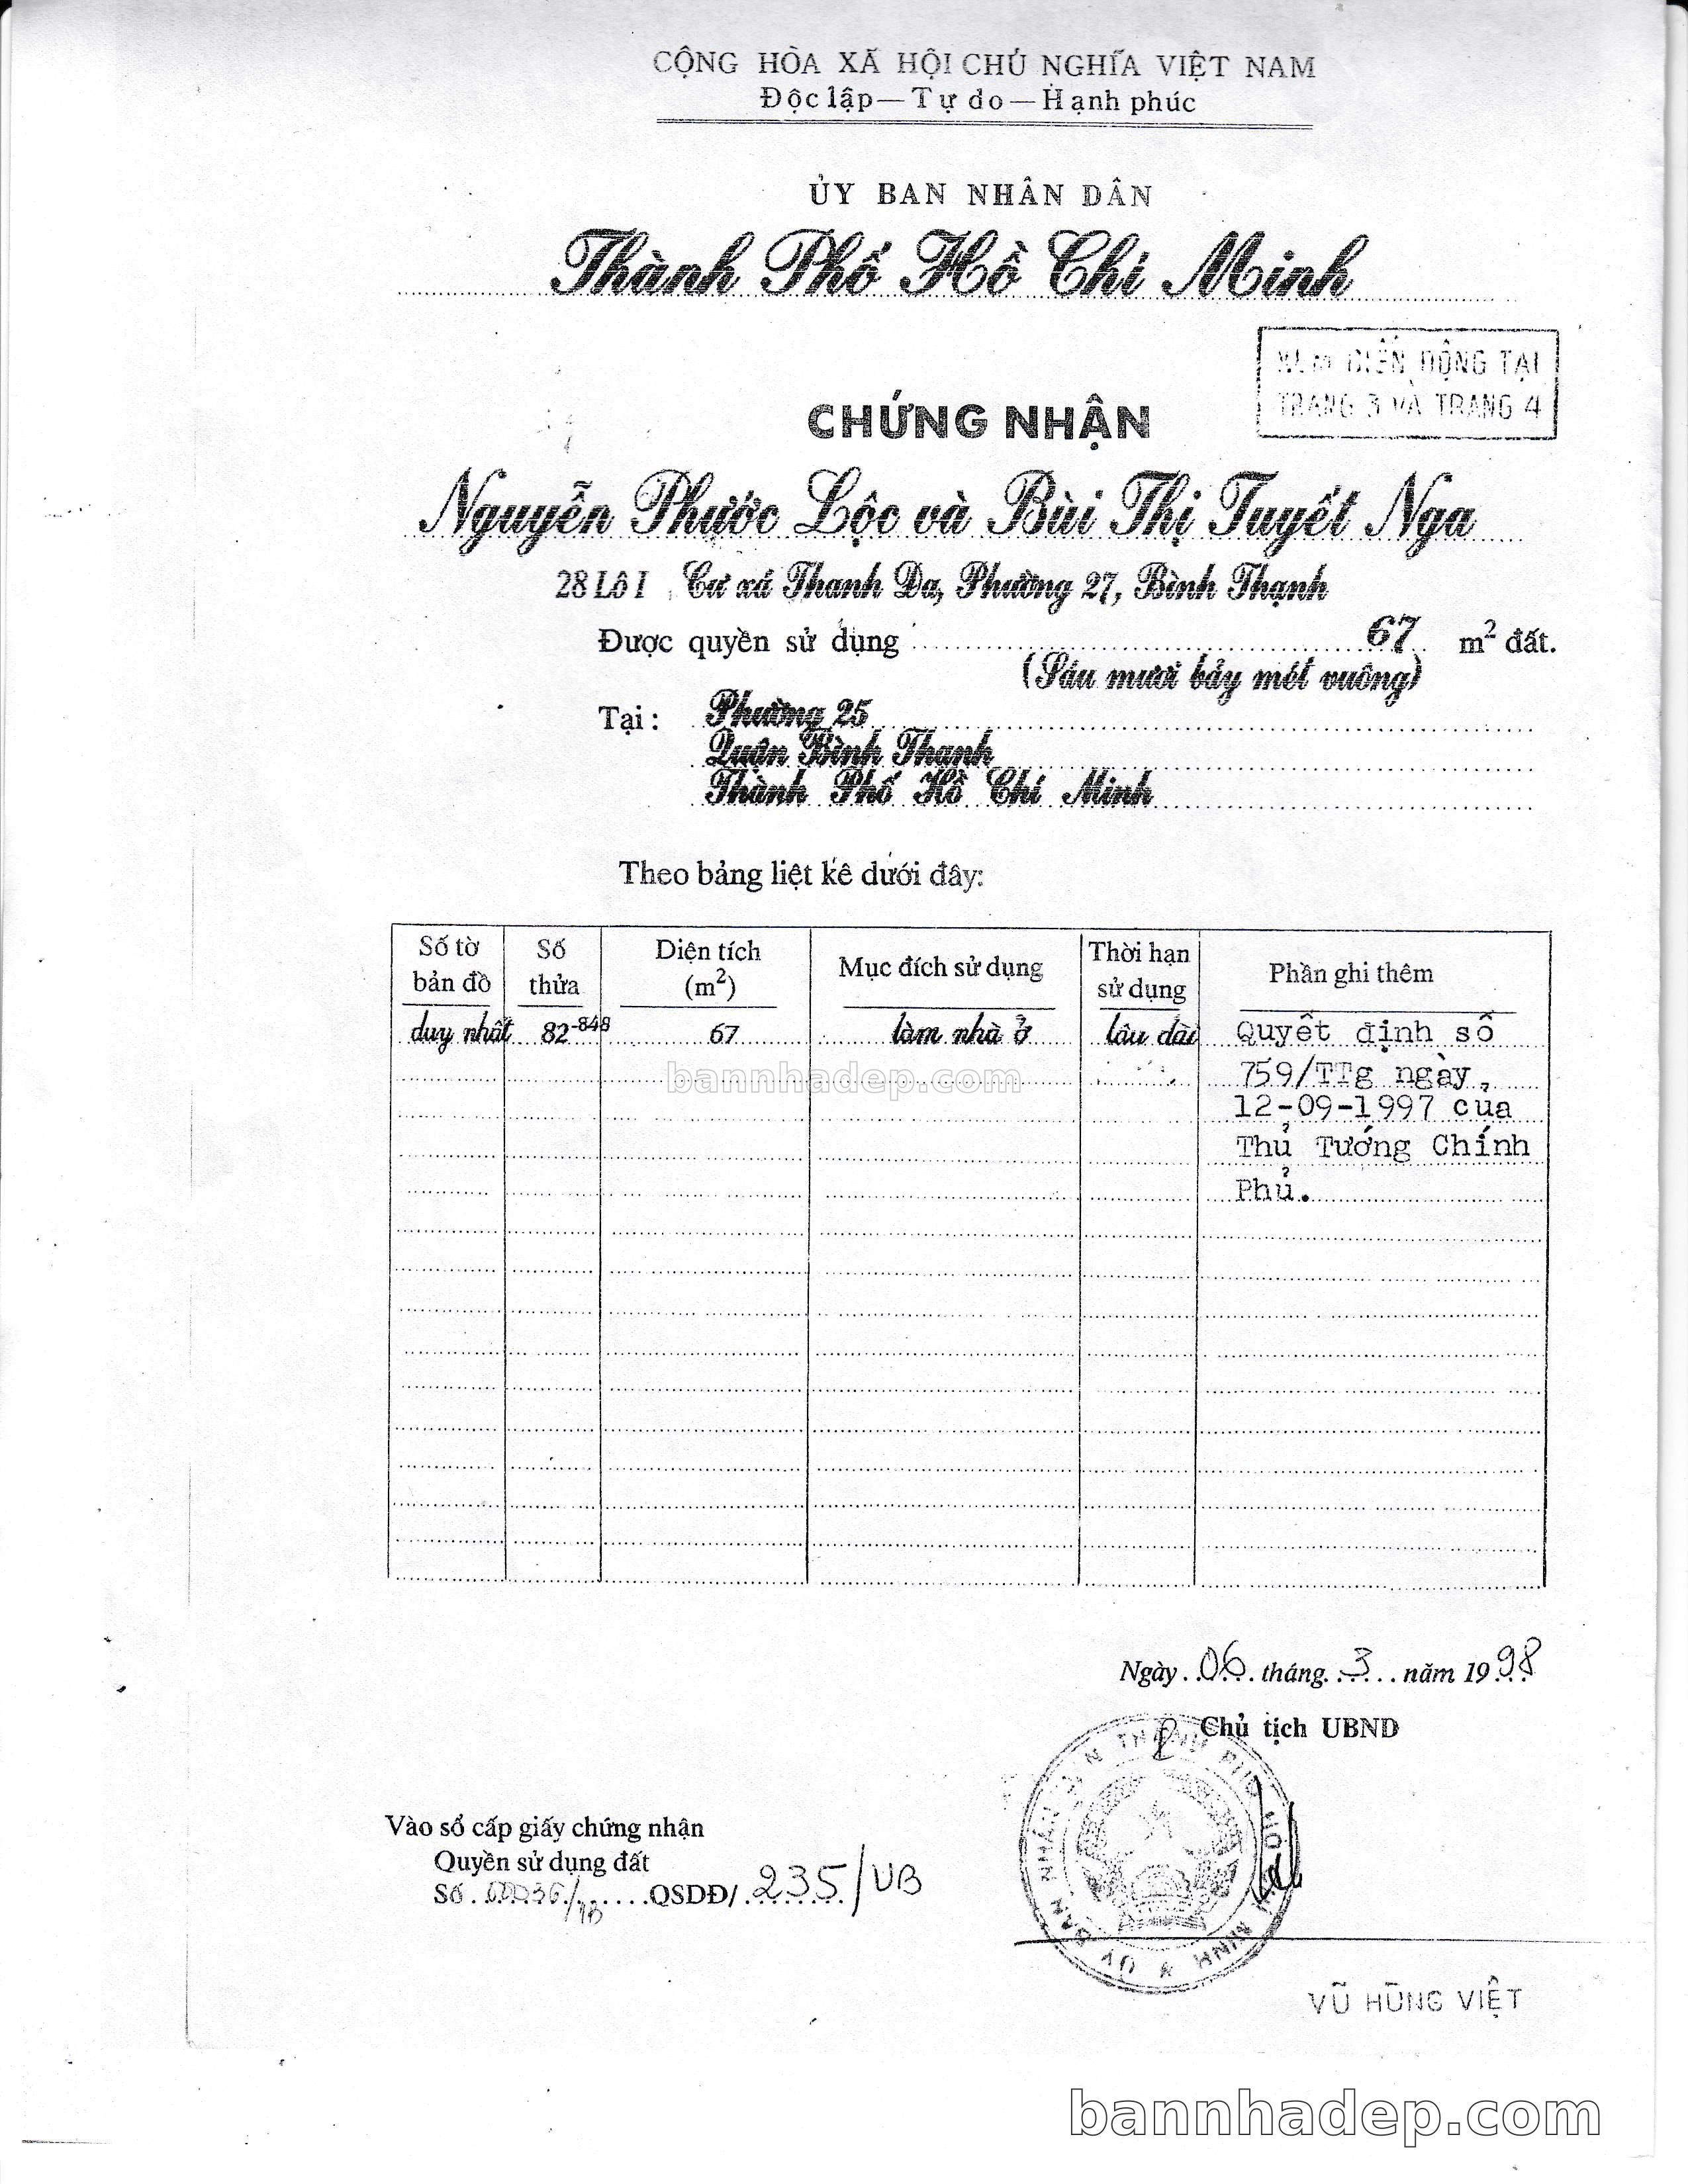 CỘNG HÒA XÃ HỘI CHỦ NGHĨA VIỆT NAM
Độc lập — Tự do — Hạnh phúc
ỦY BAN NHÂN DÂN
Thành Phố Hồ Chí Minh
BIẾN ĐỘNG TẠI
TRANG 3 VÀ TRANG 4
CHỨNG NHẬN
Nguyễn Phước Lộc và Bùi Thị Tuyết Nga
28 Lô I Cư xá Thanh Đa, Phường 27, Bình Thạnh
Được quyền sử dụng 67 m² đất.
(Sáu mươi bảy mét vuông)
Tại : Phường 25
Quận Bình Thạnh
Thành Phố Hồ Chí Minh
Theo bảng liệt kê dưới đây:
Số tờ bản đồ Số thửa Diện tích (m²) Mục đích sử dụng Thời hạn sử dụng Phần ghi thêm
duy nhất 82-848 67 làm nhà ở lâu dài Quyết định số
759/TTg ngày
12-09-1997 của
Thủ Tướng Chính
Phủ.
bannhadep.com
Ngày 06 tháng 3 năm 1998
Chủ tịch UBND
Vào sổ cấp giấy chứng nhận
Quyền sử dụng đất
Số QSDĐ/ 235/UB
VŨ HÙNG VIỆT
bannhadep.com